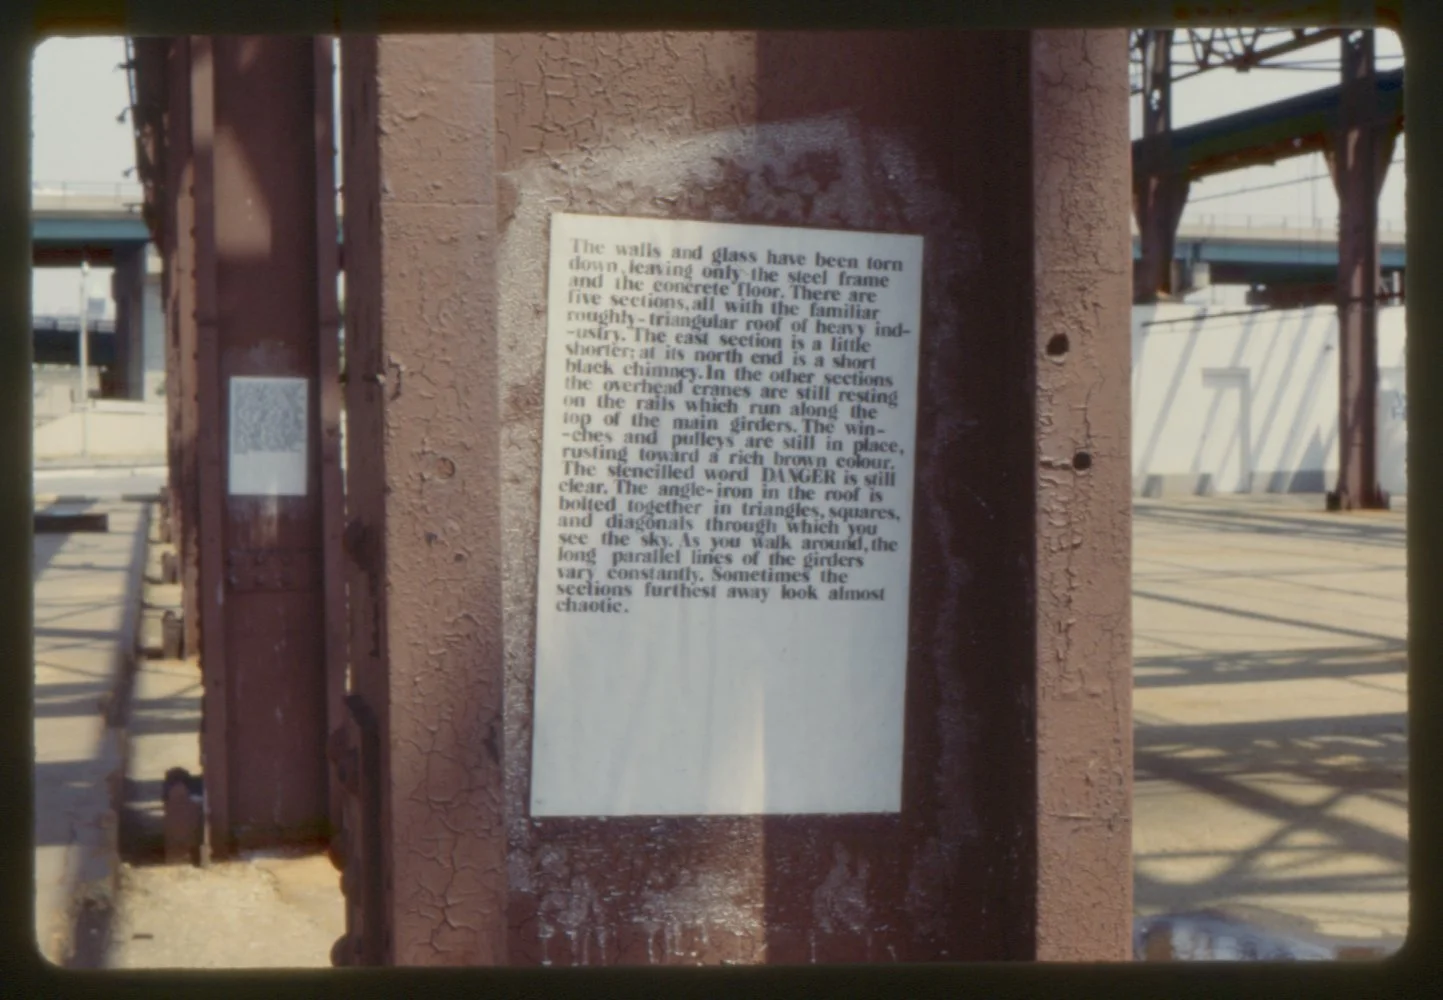 The walls and glass have been torn
down, leaving only the steel frame
and the concrete floor. There are
five sections, all with the familiar
roughly-triangular roof of heavy ind-
-ustry. The east section is a little
shorter; at its north end is a short
black chimney. In the other sections
the overhead cranes are still resting
on the rails which run along the
top of the main girders. The win-
-ches and pulleys are still in place,
rusting toward a rich brown colour.
The stencilled word DANGER is still
clear. The angle-iron in the roof is
bolted together in triangles, squares,
and diagonals through which you
see the sky. As you walk around, the
long parallel lines of the girders
vary constantly. Sometimes the
sections furthest away look almost
chaotic.